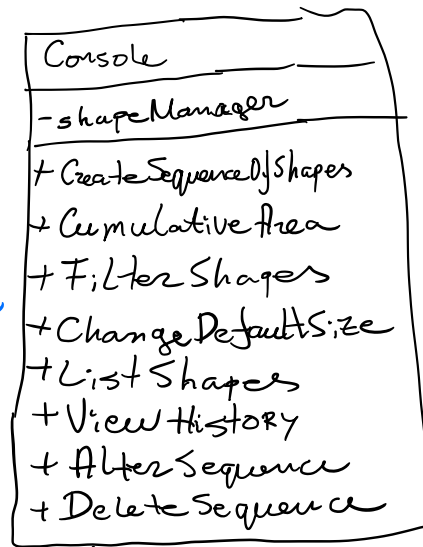 Console
-shapeManager
+CreateSequenceOfShapes
+CumulativeArea
+FilterShapes
+ChangeDefaultSize
+ListShapes
+ViewHistory
+AlterSequence
+DeleteSequence